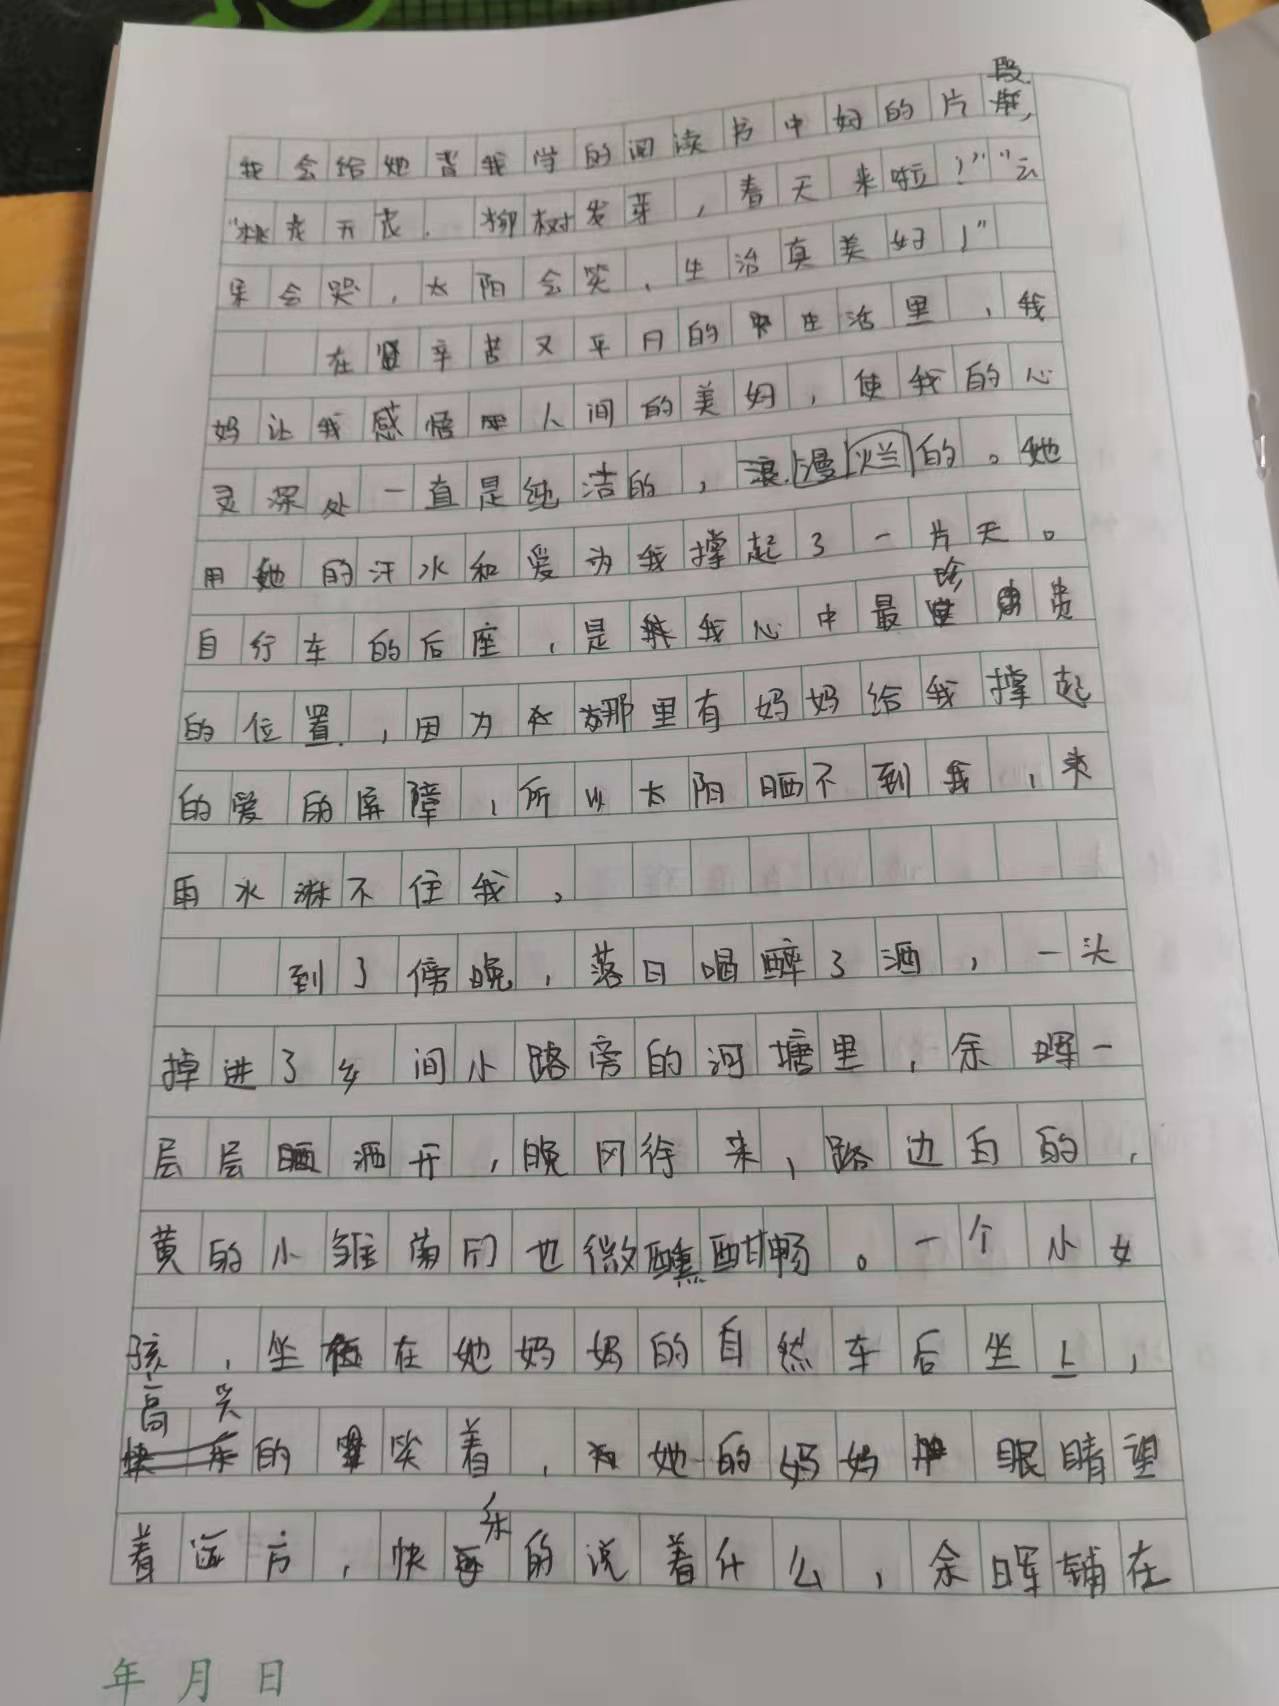 我会给她背我学的阅读书中好的片段,
“桃花开花.柳树发芽,春天来啦!”“云
朵会哭,太阳会笑,生活真美好!”
在艰辛苦又平凡的生活里,我
妈让我感悟人间的美好,使我的心
灵深处一直是纯洁的,浪漫烂的。她
用她的汗水和爱为我撑起了一片天。
自行车的后座,是我心中最珍贵
的位置,因为那里有妈妈给我撑起
的爱的屏障,所以太阳晒不到我,
雨水淋不住我。
到了傍晚,落日喝醉了酒,一头
掉进了乡间小路旁的河塘里,余晖一
层层洒开,晚风徐来,路边白的,
黄的小雏菊们也微醺酣畅。一个小女
孩,坐在她妈妈的自然车后坐上,
高兴的笑着,她的妈妈眼睛望
着远方,快乐的说着什么,余晖铺在
年 月 日